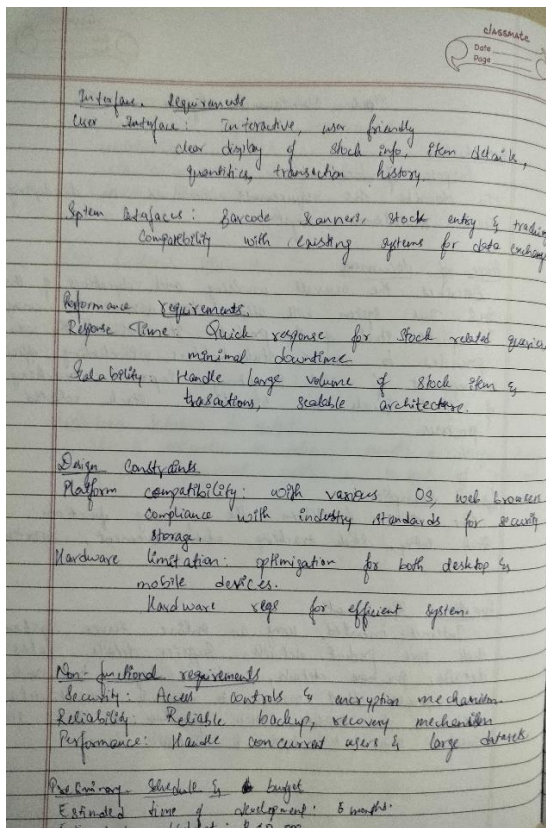 classmate
Date
Page
Interface requirements
User Interface: Interactive, user friendly
clear display of stock info, item details,
quantities, transaction history.
System Interfaces: Barcode scanners, stock entry & tracking
Compatebility with existing systems for data exchang
Performance requirements.
Response Time: Quick response for stock related queries
minimal downtime
Scalability: Handle large volume of stock item &
trasactions, scalable architecture.
Design Constraints.
Platform compatibility: with various OS, web browsers
compliance with industry standards for security
storage.
Hardware limitation: optimization for both desktop &
mobile devices.
Hardware reqs for efficient system.
Non-functional requirements
Security: Access controls & encryption mechanism.
Reliability: Reliable backup, recovery mechanism
Performance: Handle concurrent users & large datasets
Preliminary Schedule & budget
Estimated time of development: 8 months.